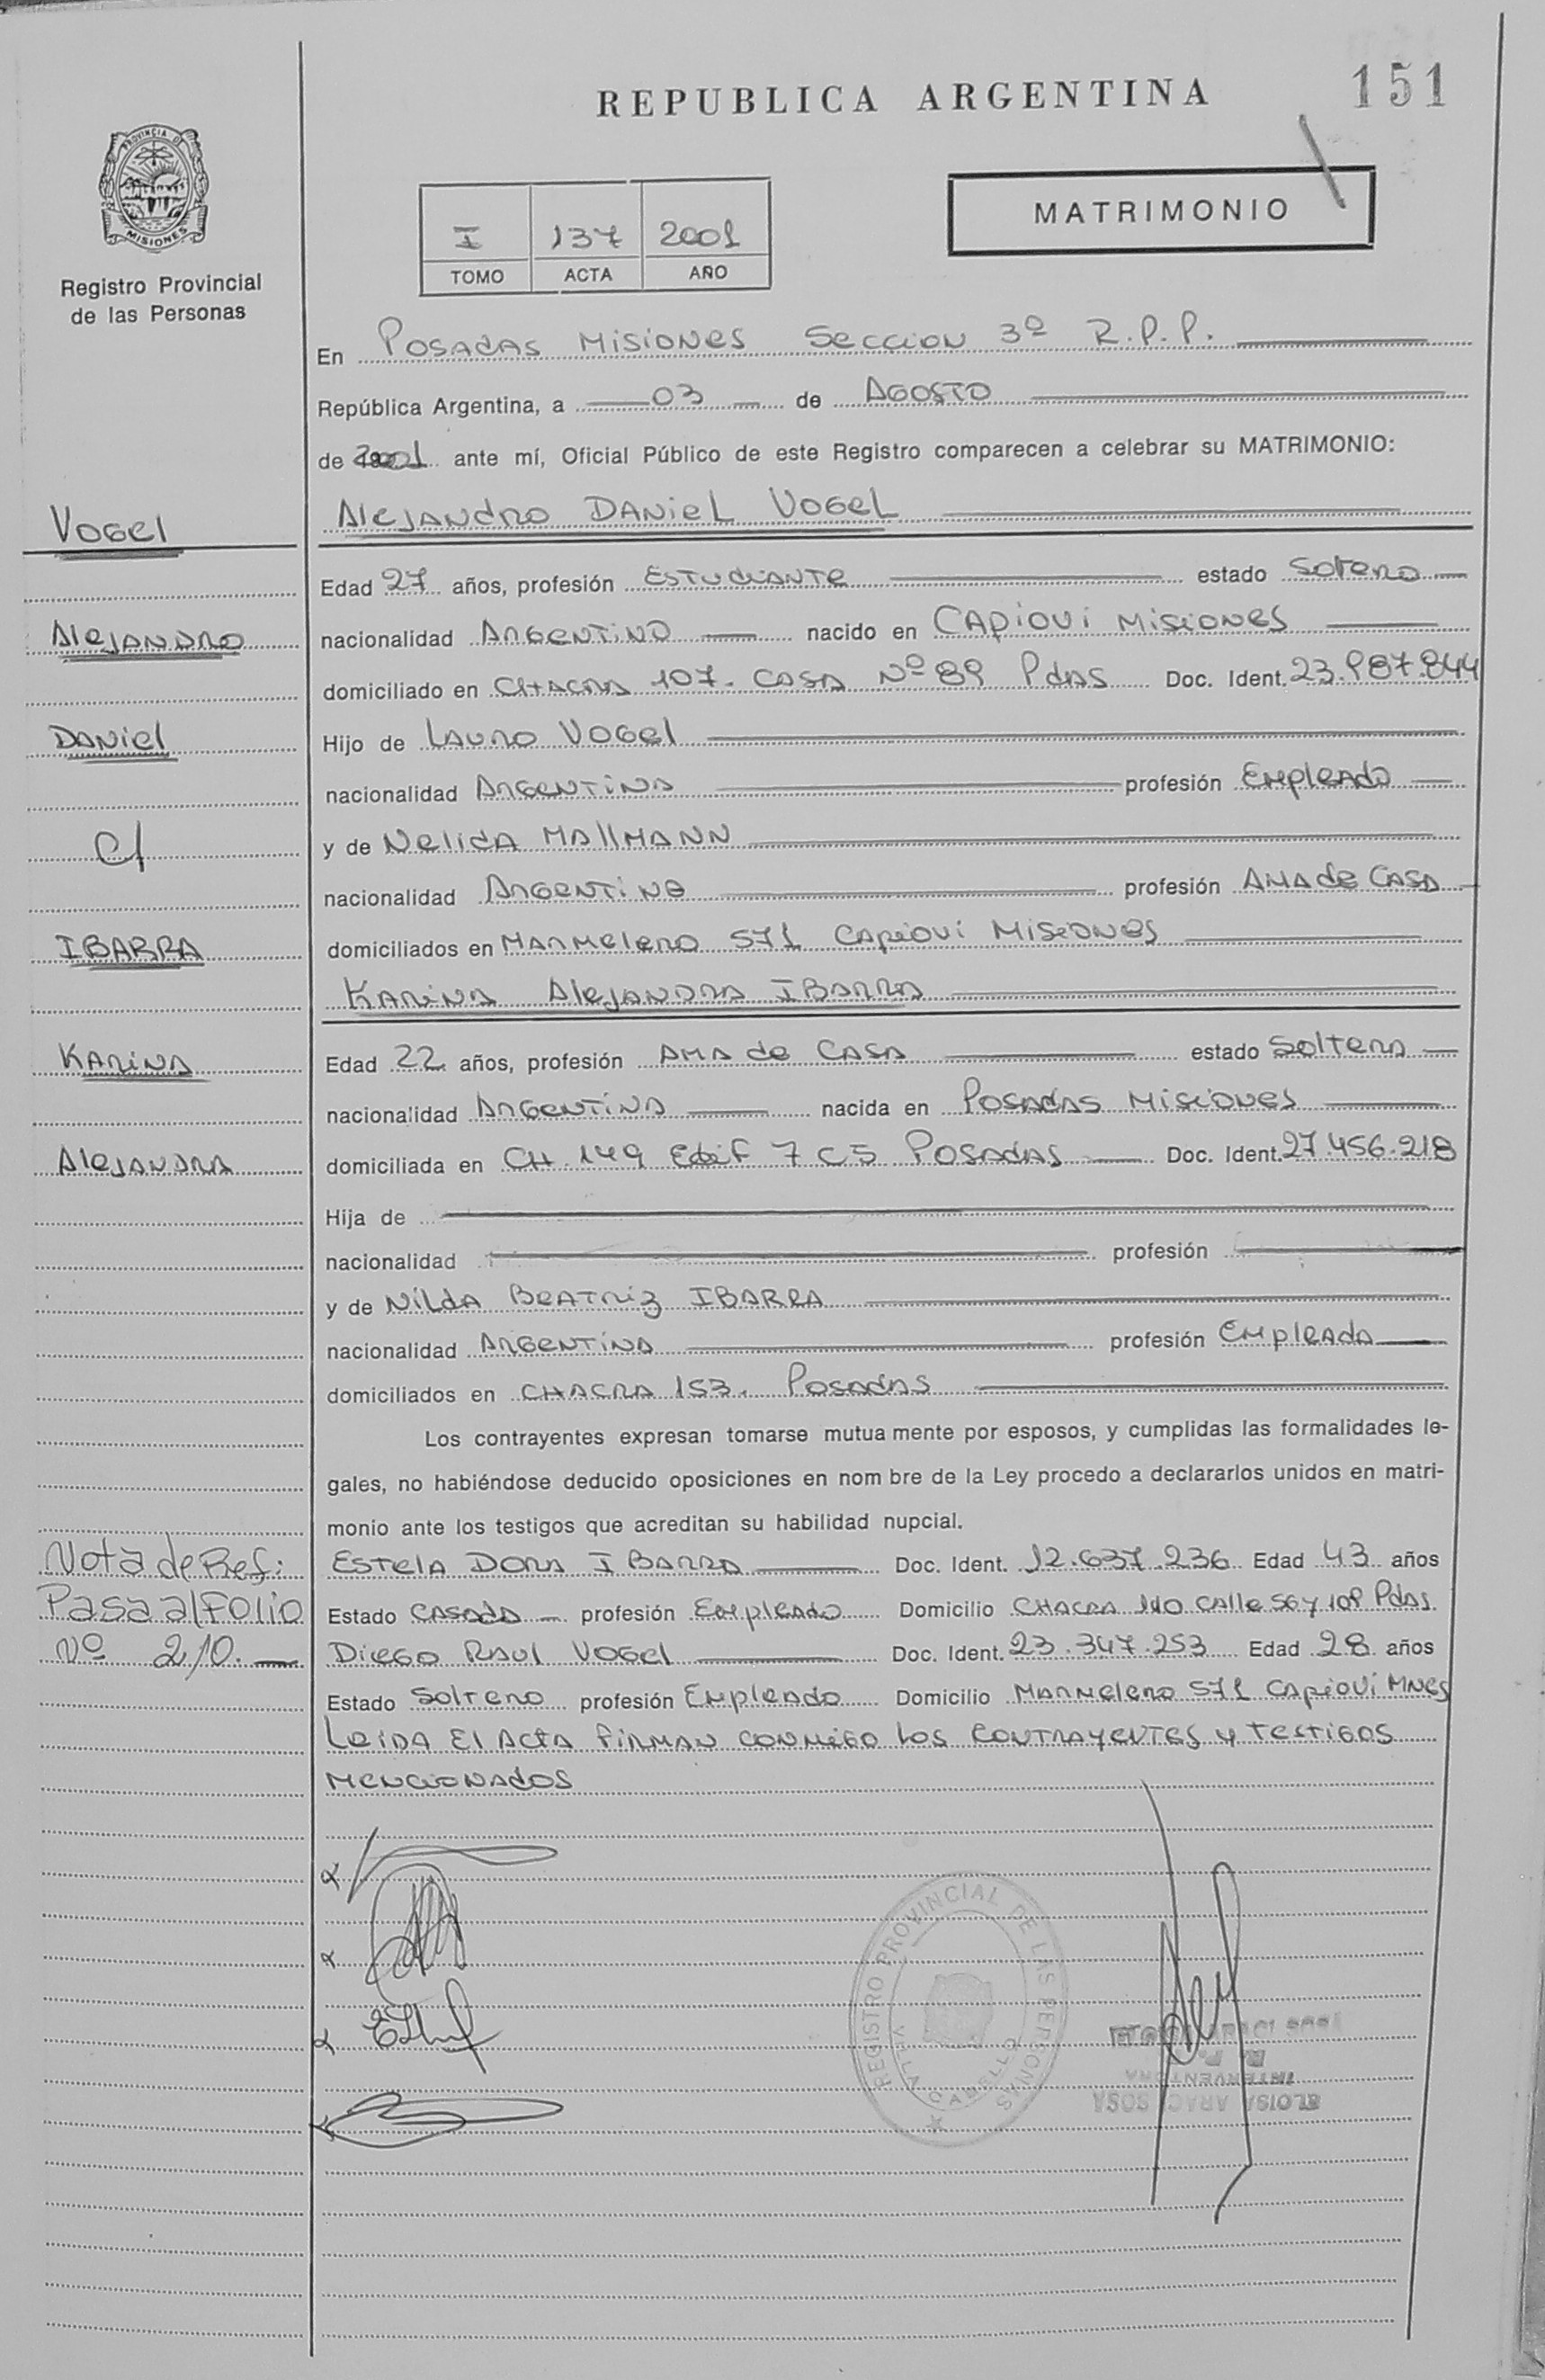 REPUBLICA ARGENTINA
151
PROVINCIA D
MISIONES
Registro Provincial
de las Personas
I 137 2001
TOMO ACTA AÑO
MATRIMONIO
En Posadas Misiones Seccion 3º R.P.P.
República Argentina, a 03 de Agosto
de 2001 ante mí, Oficial Público de este Registro comparecen a celebrar su MATRIMONIO:
Vogel
Alejandro Daniel Vogel
Edad 27 años, profesión Estudiante estado Soltero
Alejandro
nacionalidad Argentino nacido en Capiovi Misiones
domiciliado en Chacra 107. Casa Nº 89 Pdas Doc. Ident. 23.987.844
Daniel
Hijo de Lauro Vogel
nacionalidad Argentina profesión Empleado
c/
y de Nelida Mallmann
nacionalidad Argentina profesión Ama de Casa
IBARRA
domiciliados en Marmelero 571 Capiovi Misiones
Karina Alejandra Ibarra
Karina
Edad 22 años, profesión Ama de Casa estado Soltera
nacionalidad Argentina nacida en Posadas Misiones
Alejandra
domiciliada en CH. 149 Edif 7 C5 Posadas Doc. Ident. 27.456.218
Hija de
nacionalidad profesión
y de Nilda Beatriz IBARRA
nacionalidad Argentina profesión Empleada
domiciliados en Chacra 153. Posadas
Los contrayentes expresan tomarse mutua mente por esposos, y cumplidas las formalidades le-
gales, no habiéndose deducido oposiciones en nom bre de la Ley procedo a declararlos unidos en matri-
monio ante los testigos que acreditan su habilidad nupcial.
Nota de Ref:
Estela Dora Ibarra Doc. Ident. 12.637.236 Edad 43 años
Pasa al Folio
Estado Casada profesión Empleado Domicilio Chacra 140 Calle 56 y 109 Pdas
Nº 210.
Diego Raul Vogel Doc. Ident. 23.347.253 Edad 28 años
Estado Soltero profesión Empleado Domicilio Marmelero 571 Capiovi Mnes
Leida El Acta firman conmigo los contrayentes y testigos
mencionados
REGISTRO PROVINCIAL DE LAS PERSONAS
VILLA CABELLO
INTERVENTORA
ELOISA ARACI SOSA